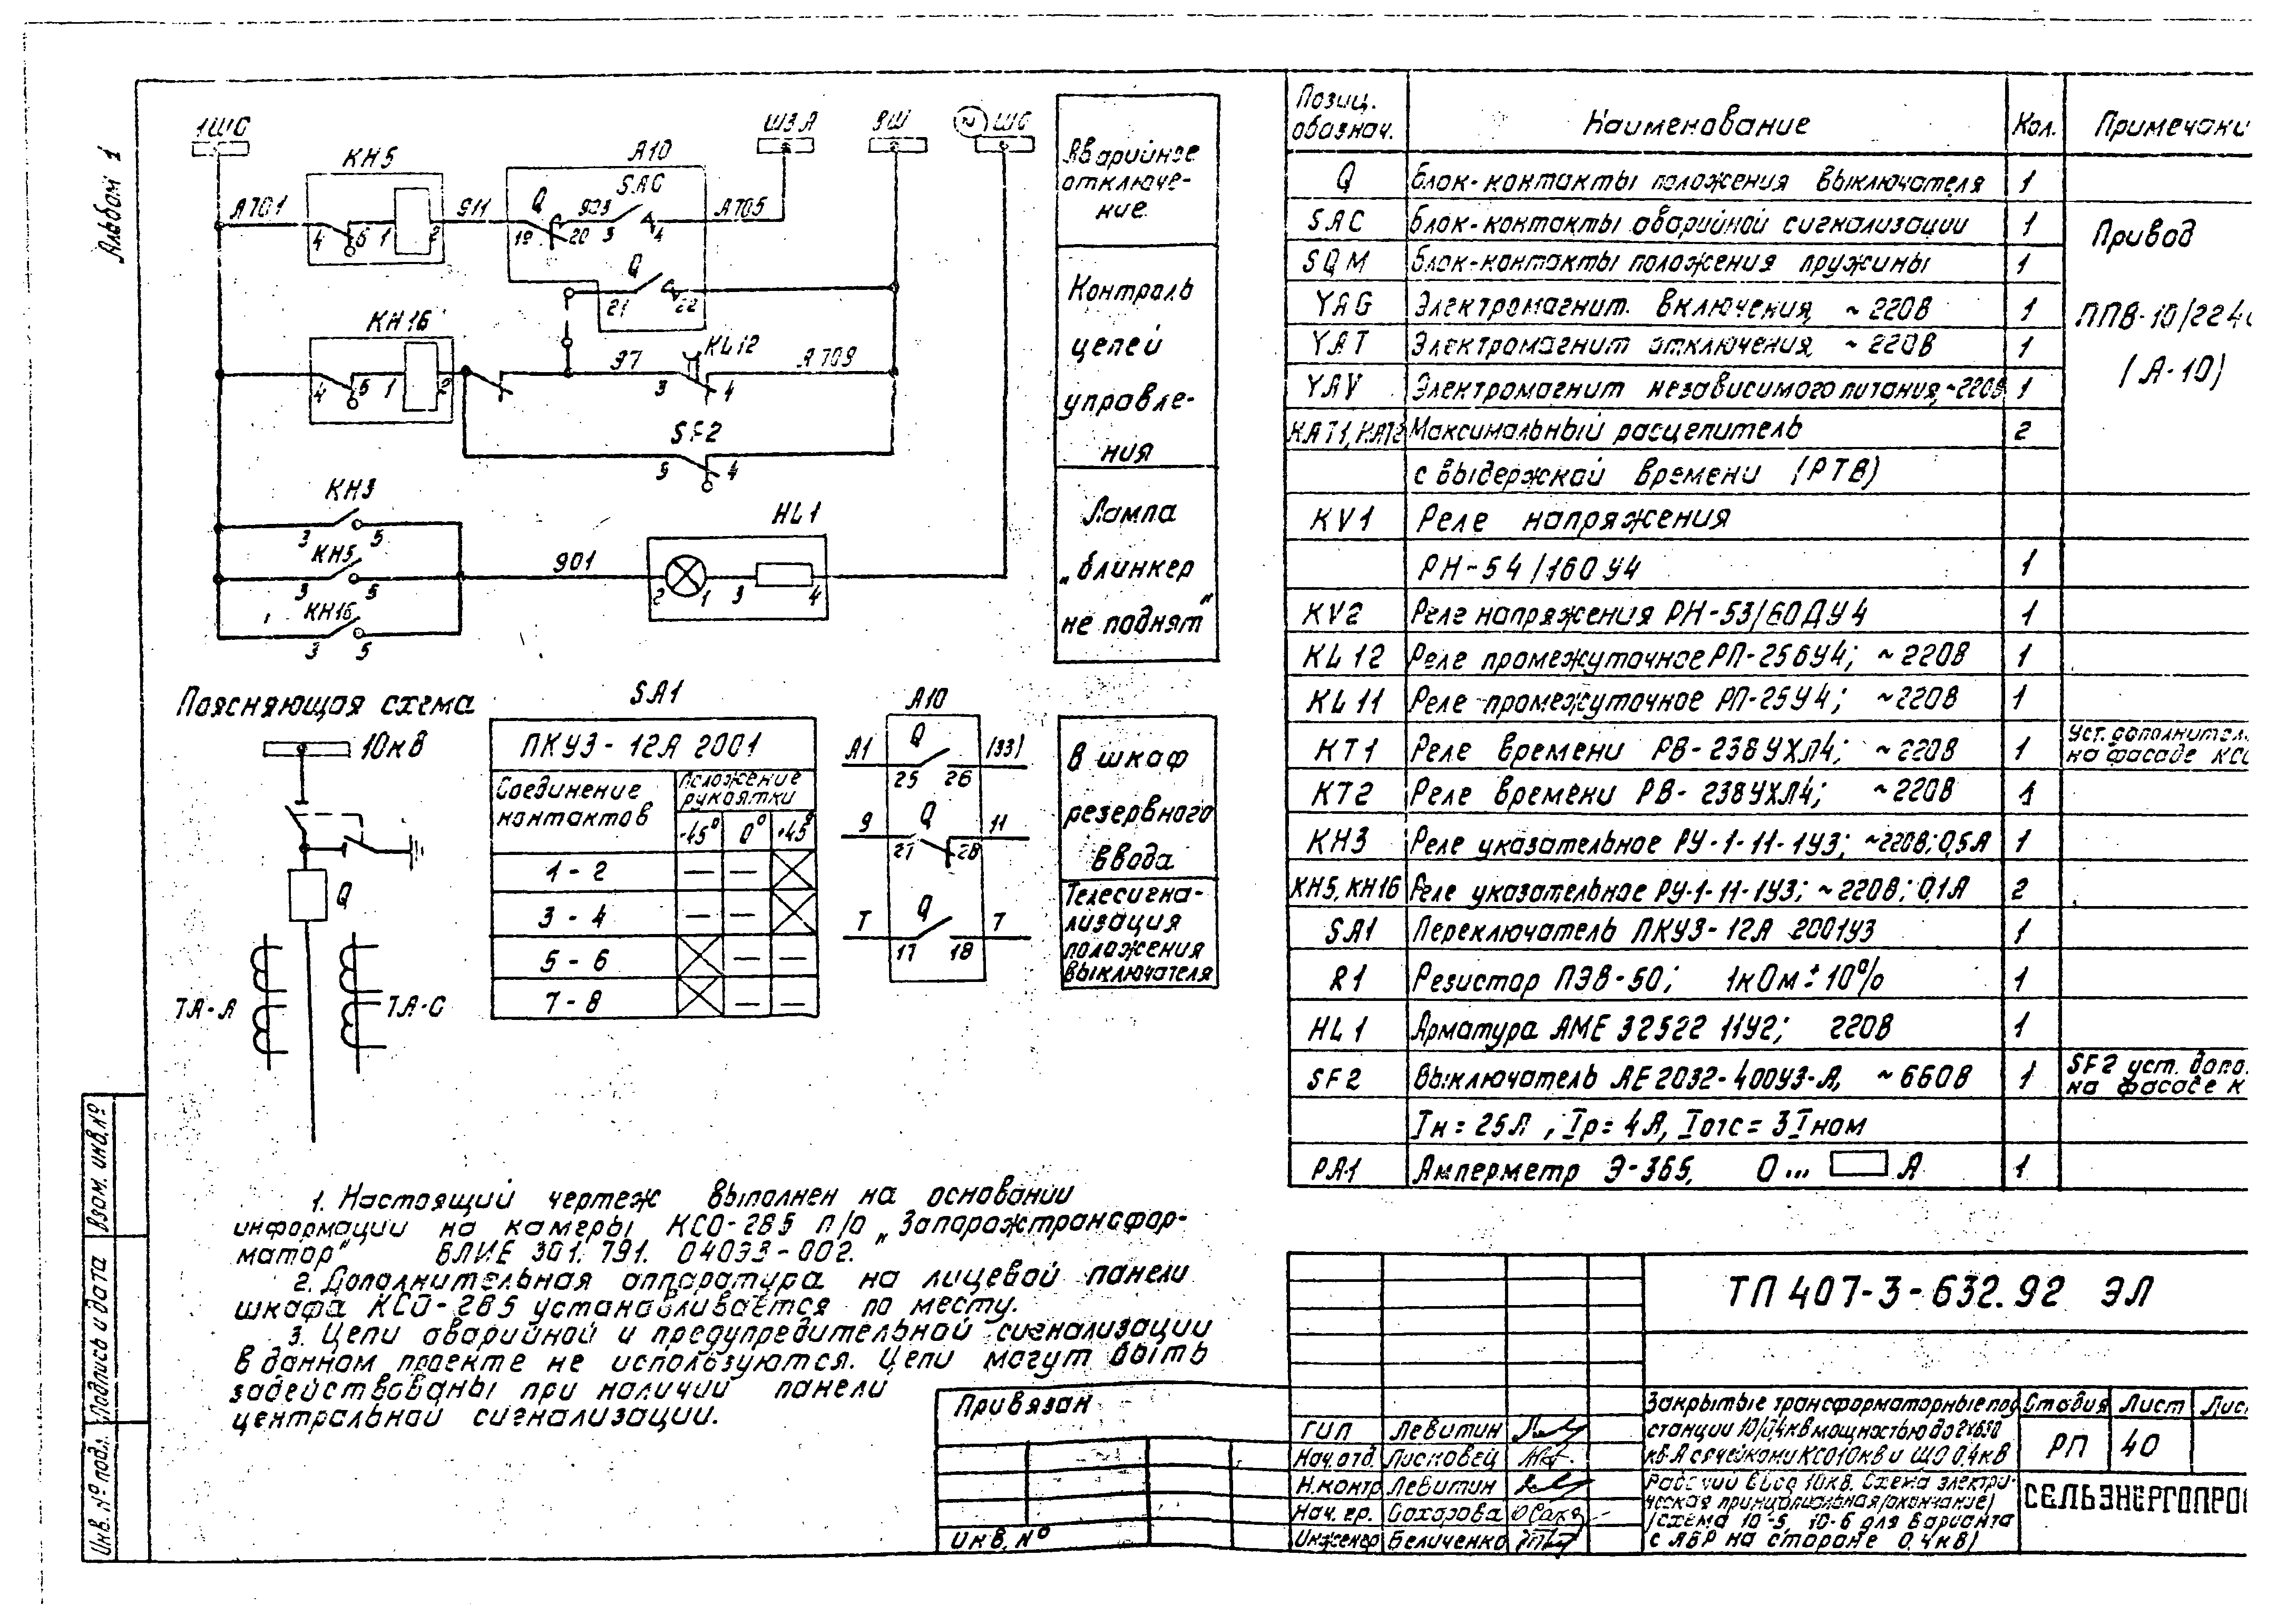 Альбом 1
1ШС
ШЗА
ВШ
~ ШС
KH5
A10
SAC
A701
4 6 1 2
911
Q
19 20
903
3 4
A705
Q
21 22
KH16
4 6 1 2
97
KL12
3 4
A709
SF2
4
KH3
3 5
KH5
3 5
KH16
3 5
901
HL1
2 1 3 4
Аварийное
отключе-
ние.
Контроль
цепей
управле-
ния
Лампа
„блинкер
не поднят"
Поясняющая схема
10кВ
Q
TA-A
TA-C
SA1
ПКУ3-12А 2001
Соединение
контактов
Положение
рукоятки
-45° 0° +45°
1-2 — —
3-4 — —
5-6 — —
7-8 — —
A10
A1 Q (33)
25 26
9 Q 11
27 28
T Q T
17 18
В шкаф
резервного
ввода
Телесигна-
лизация
положения
выключателя
1. Настоящий чертеж выполнен на основании
информации на камеры КСО-285 п/о „Запорожтрансфор-
матор" ВЛИЕ 301. 791. 04033-002.
2. Дополнительная аппаратура на лицевой панели
шкафа КСО-285 устанавливается по месту.
3. Цепи аварийной и предупредительной сигнализации
в данном проекте не используются. Цепи могут быть
задействованы при наличии панели
центральной сигнализации.
Позиц.
обознач.
Наименование
Кол.
Примечани
Q Блок-контакты положения выключателя 1
SAC Блок-контакты аварийной сигнализации 1
SQM Блок-контакты положения пружины 1
YAG Электромагнит. включения, ~220В 1
YAT Электромагнит отключения, ~220В 1
YAV Электромагнит независимого питания,~220В 1
Привод
ППВ-10/224
(А-10)
KAT1, KAT2 Максимальный расцепитель 2
с выдержкой времени (РТВ)
KV1 Реле напряжения
РН-54/160У4 1
KV2 Реле напряжения РН-53/60ДУ4 1
KL12 Реле промежуточное РП-256У4; ~220В 1
KL11 Реле промежуточное РП-25У4; ~220В 1
KT1 Реле времени РВ-238УХЛ4; ~220В 1 Уст. дополнител.
на фасаде КС
KT2 Реле времени РВ-238УХЛ4; ~220В 1
KH3 Реле указательное РУ-1-11-1У3; ~220В; 0,5А 1
KH5, KH16 Реле указательное РУ-1-11-1У3; ~220В; 0,1А 2
SA1 Переключатель ПКУ3-12А 2001У3 1
R1 Резистор ПЭВ-50; 1кОм±10% 1
HL1 Арматура АМЕ 3252211У2; 220В 1
SF2 Выключатель АЕ2032-400У3-А, ~660В 1 SF2 уст. допо.
на фасаде К
Iн=25А, Iр=4А, Iотс=3Iном
PA1 Амперметр Э-365, 0... А 1
ТП 407-3-632.92 ЭЛ
Привязан
Инв. №
ГИП Левитин
Нач.отд. Лисковец
Н.контр Левитин
Нач. гр. Сахарова
Инженер Беличенко
Закрытые трансформаторные под
станции 10/0,4кВ мощностью до 2х630
кВ·А с ячейками КСО10кВ и ЩО 0,4кВ
Рабочий ввод 10кВ. Схема электри-
ческая принципиальная (окончание)
(схема 10-5, 10-6 для варианта
с АВР на стороне 0,4кВ)
Стадия Лист Лис
РП 40
СЕЛЬЭНЕРГОПРО
Взам. инв.№
Подпись и дата
Инв. № подл.